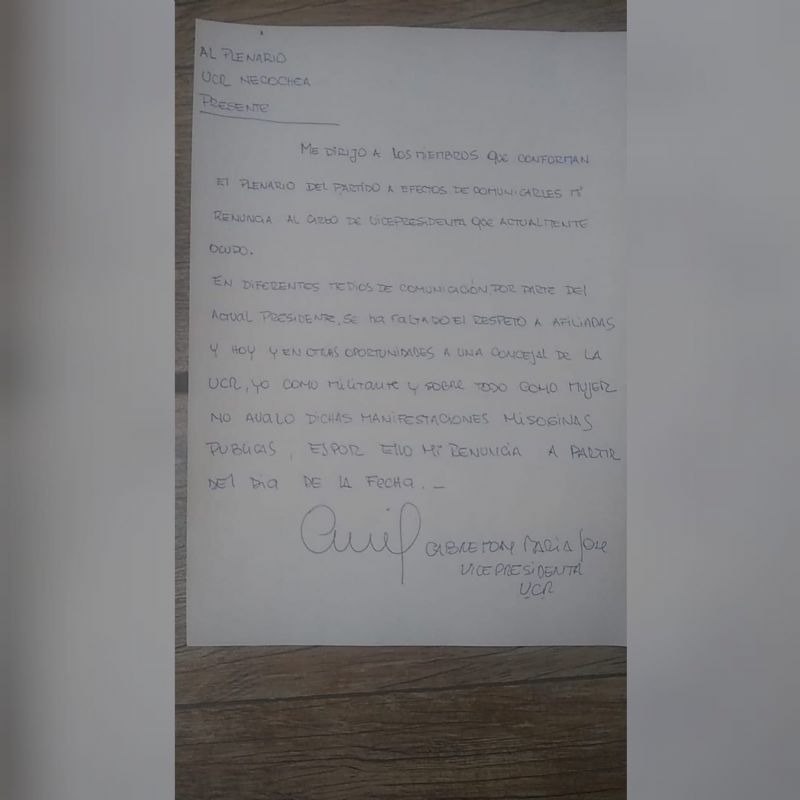 AL PLENARIO
UCR NECOCHEA
PRESENTE
ME DIRIJO A LOS MIEMBROS QUE CONFORMAN
El PLENARIO DEL PARTIDO A EFECTOS DE COMUNICARLES MI
RENUNCIA AL CARGO DE VICEPRESIDENTA QUE ACTUALMENTE
OCUPO.
EN DIFERENTES MEDIOS DE COMUNICACIÓN POR PARTE DEl
ACTUAL PRESIDENTE, SE ha FALTADO El RESPETO A AFILIADAS
Y HOY Y EN OTRAS OPORTUNIDADES A UNA CONCEJAL DE LA
UCR, YO COMO MILITANTE Y SOBRE TODO COMO MUJER
NO AVALO DICHAS MANIFESTACIONES MISOGINAS
PUBLICAS, ES POR ELLO MI RENUNCIA A PARTIR
DEl DIA DE LA FECHA._
MARIA
VICEPRESIDENTA
UCR